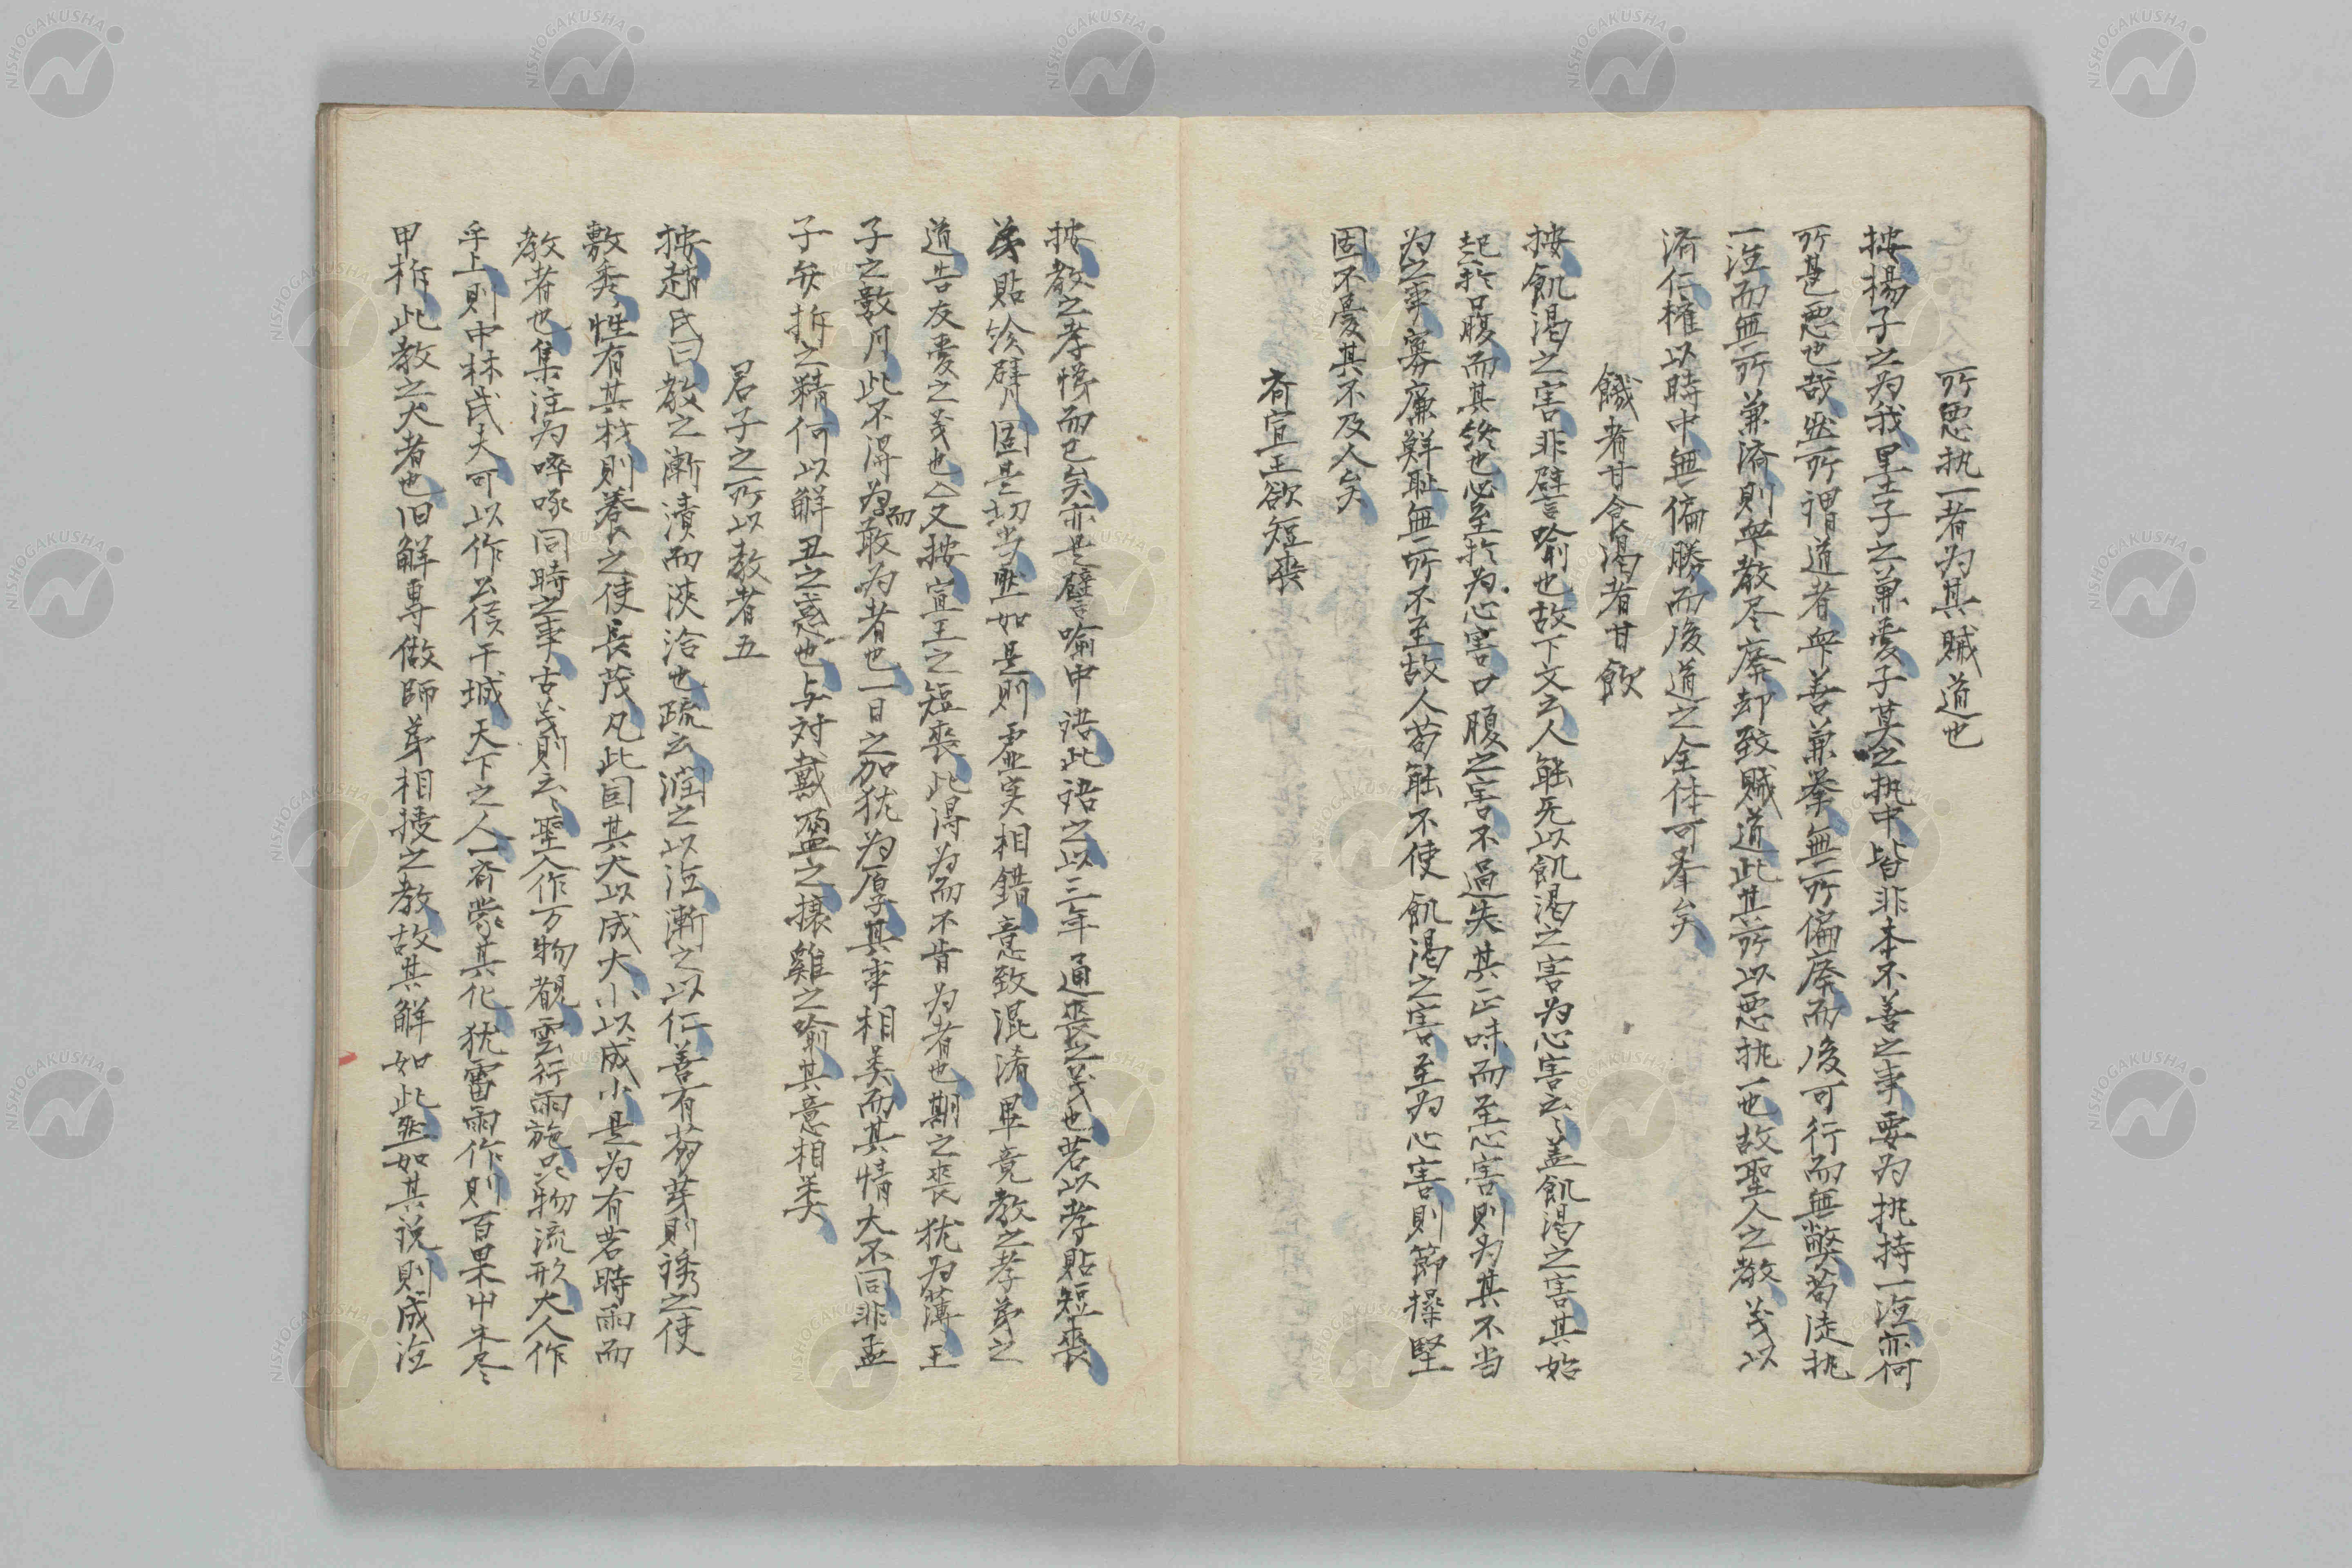 所悪执一者为其賊道也
按楊子之为我墨子之兼愛子莫之执中皆非本不善之事要为执持一法亦何
所甚悪也哉然所謂道者毋善兼挙無所偏廃而後可行而無弊苟徒执
一法而無所兼済則毋教尽廃却致賊道此其所以悪执一也故聖人之教義以
済仁権以時中無偏勝而後道之全体可挙矣
饑者甘食渇者甘飲
按飢渇之害非譬喻也故下文云人能无以飢渇之害为心害云〻盖飢渇之害其始
起於口腹而其終也必至於为心害口腹之害不過失其正味而至心害則为其不当
为之事寡廉鮮恥無所不至故人苟能不使飢渇之害至为心害則節操堅
固不憂其不及人矣
斉宣王欲短喪
按教之孝悌而已矣亦是譬喻中語此語之以三年通喪之義也若以孝貼短喪
弟貼紾臂固是切当然如是則虚実相錯意致混淆畢竟教之孝弟之
道告友愛之義也又按宣王之短喪此得为而不肯为者也期之喪犹为薄王
子之数月此不得为而敢为者也一日之加犹为厚其事相类而其情大不同非孟
子矣折之精何以解丑之惑也与対戴盈之攘雞之喻其意相类
君子之所以教者五
按趙氏曰教之漸漬而浹洽也疏云潤之以沢漸之以仁善有萌芽則誘之使
敷秀性有其材則養之使長茂凡此因其大以成大小以成小是为有若時雨而
教者也集注为啐啄同時之事古義則云〻聖人作万物覩雲行雨施品物流形大人作
乎上則中林武夫可以作公侯干城天下之人一斉蒙其化犹雷雨作則百果中木尽
甲柝此教之大者也旧解専做師弟相接之教故其解如此然如其説則成法